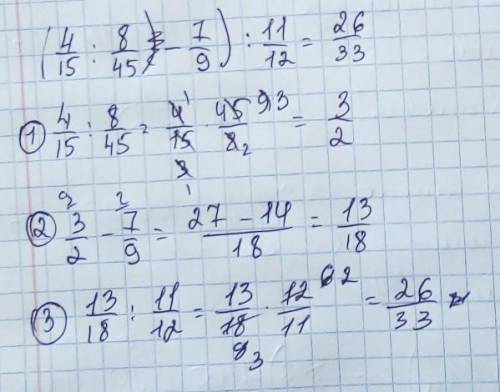 (4/15 : 8/45 - 7/9) : 11/12 = 26/33
① 4/15 : 8/45 = 4/15 · 45/8 = 3/2
② 3/2 - 7/9 = 27 - 14/18 = 13/18
③ 13/18 : 11/12 = 13/18 · 12/11 = 26/33